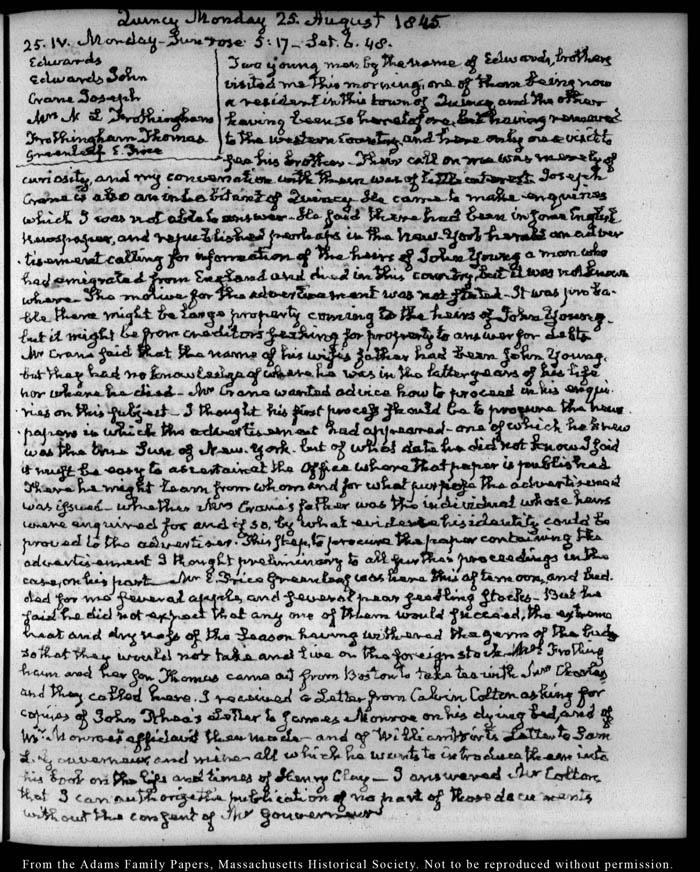 Quincy Monday 25. August 1845.
25. IV. Monday – Sun rose 5:17 – Set. 6. 48.
Edwards
Edwards John
Crane Joseph
Mrs N L Frothingham
Frothingham Thomas
Greenleaf E. Price
Two young men by the name of Edwards, brothers
visited me this morning, one of them being now
a resident in this town of Quincy, and the other
having been so heretofore, but having removed
to the western Country and here only on a visit to
see his brother. Their call on me was merely of
curiosity, and my conversation with them was of little interest. Joseph
Crane is also an inhabitant of Quincy. He came to make enquiries
which I was not able to answer – He said there had been in some English
Newspaper, and republished perhaps in the New-York herald an adver
tisement calling for information of the heirs of John Young a man who
had emigrated from England and died in this country, but it was not known
where – The motive for the advertisement was not stated – It was proba-
ble there might be large property coming to the heirs of John Young –
but it might be from creditors seeking for property to answer for debts
Mr Crane said that the name of his wife's father had been John Young,
but they had no knowledge of where he was in the latter years of his life
nor where he died – Mr Crane wanted advice how to proceed in his enqui-
ries on this subject – I thought his first process should be to procure the news
papers in which the advertisement had appeared – one of which he knew
was the true Sun of New-York. but of what date he did not know I said
it might be easy to ascertain at the Office where that paper is published
There he might learn from whom and for what purpose the advertisement
was issued – whether Mrs Crane's father was the individual whose heirs
were enquired for and if so, by what evidence his identity could be
proved to the advertiser. This step, to procure the paper containing the
advertisement I thought preliminary to all further proceedings in the
case, on his part – Mr E. Price Greenleaf was here this afternoon, and bud-
ded for me several apple, and several pear seedling stocks – But he
said he did not expect that any one of them would succeed, the extreme
heat and dryness of the season having withered the germs of the buds
so that they would not take and live on the foreign stock – Mrs Frothing
ham and her son Thomas came out from Boston to take tea with Mrs Charles
and they called here. I received a Letter from Calvin Colton asking for
copies of John Rhea's Letter to James Monroe on his dying bed, and of
Mr Monroe's affidavit then made – and of William Wirt's Letter to Sam
L. Gouverneur, and mine – all which he wants to introduce them into
his book on the life and times of Henry Clay – I answered Mr Colton
that I can authorize the publication of no part of those documents
without the consent of Mr Gouverneur
From the Adams Family Papers, Massachusetts Historical Society. Not to be reproduced without permission.